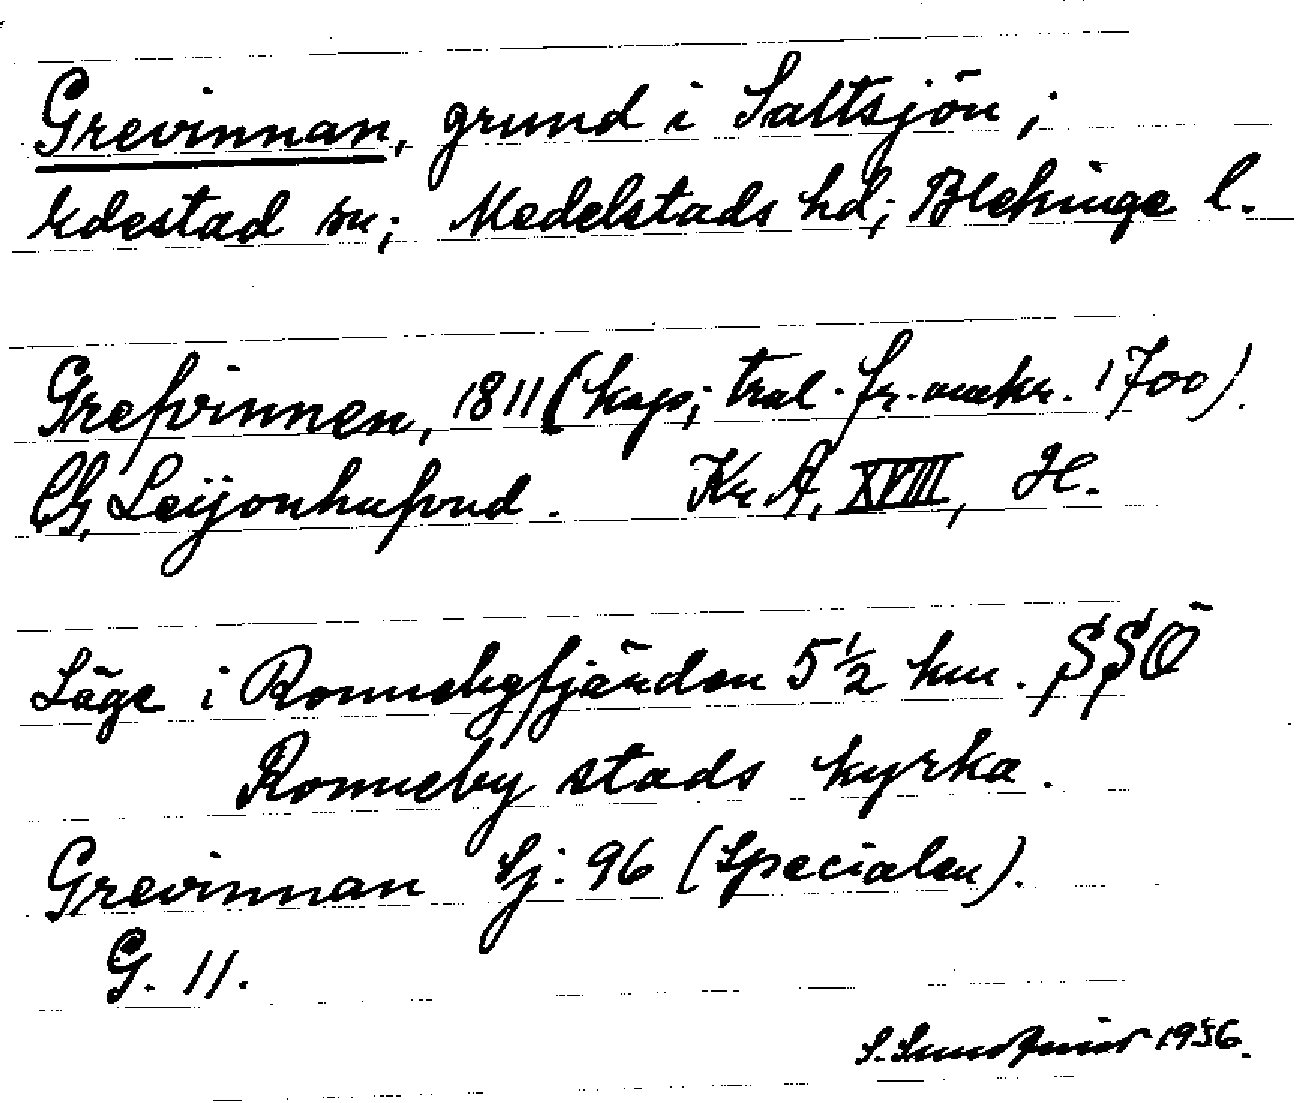 Grevinnan, grund i Saltsjön;
Edestad sn; Medelstads hd; Blekinge l.
Grefvinnen, 1811 (kop; tral. fr. omkr. 1700).
Ch. Leijonhufvud. Kr. A. XVIII, H.
Läge i Ronnebyfjärden 5 1/2 km. SSÖ
Ronneby stads kyrka.
Grevinnan Sj: 96 (Specialen).
G. 11.
S. 1956.